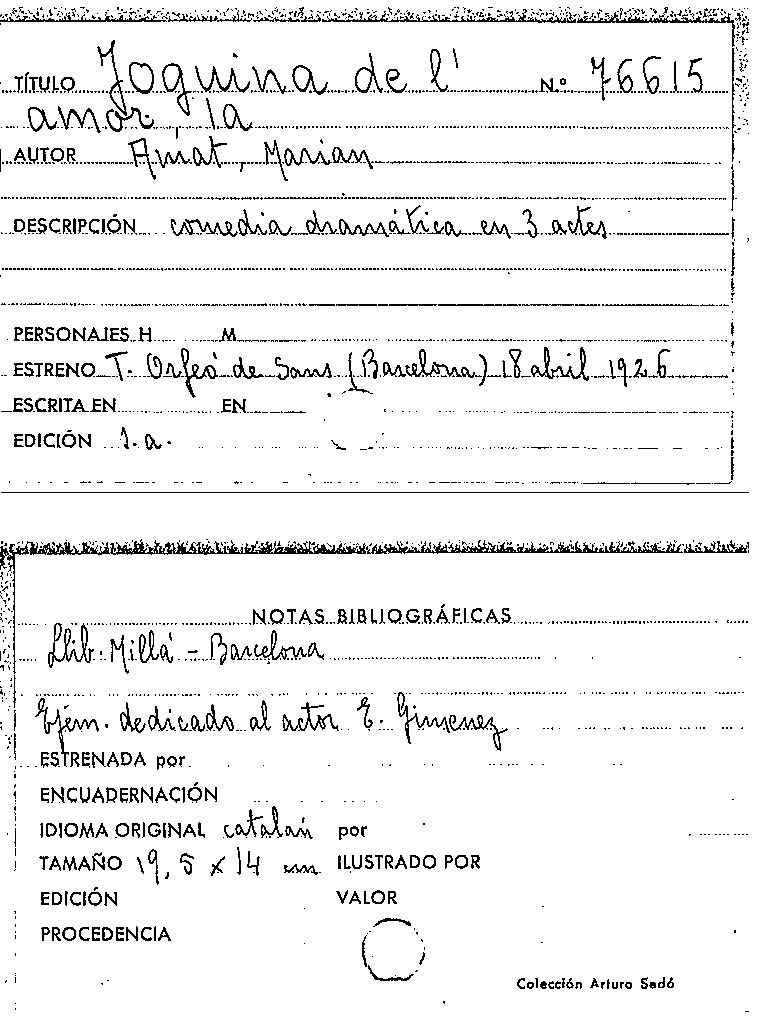 TÍTULO Joguina de l' N.º 76615
amor, la
AUTOR Amat, Marian
DESCRIPCIÓN comedia dramática en 3 actes
PERSONAJES H M
ESTRENO T. Orfeó de Sans (Barcelona) 18 abril 1926
ESCRITA EN EN
EDICIÓN 1.a.
NOTAS BIBLIOGRÁFICAS
Llib. Millá - Barcelona
Ejem. dedicado al actor E. Gimenez
ESTRENADA por
ENCUADERNACIÓN
IDIOMA ORIGINAL catalán por
TAMAÑO 19,5 x 14 cm ILUSTRADO POR
EDICIÓN VALOR
PROCEDENCIA
Colección Arturo Sedó